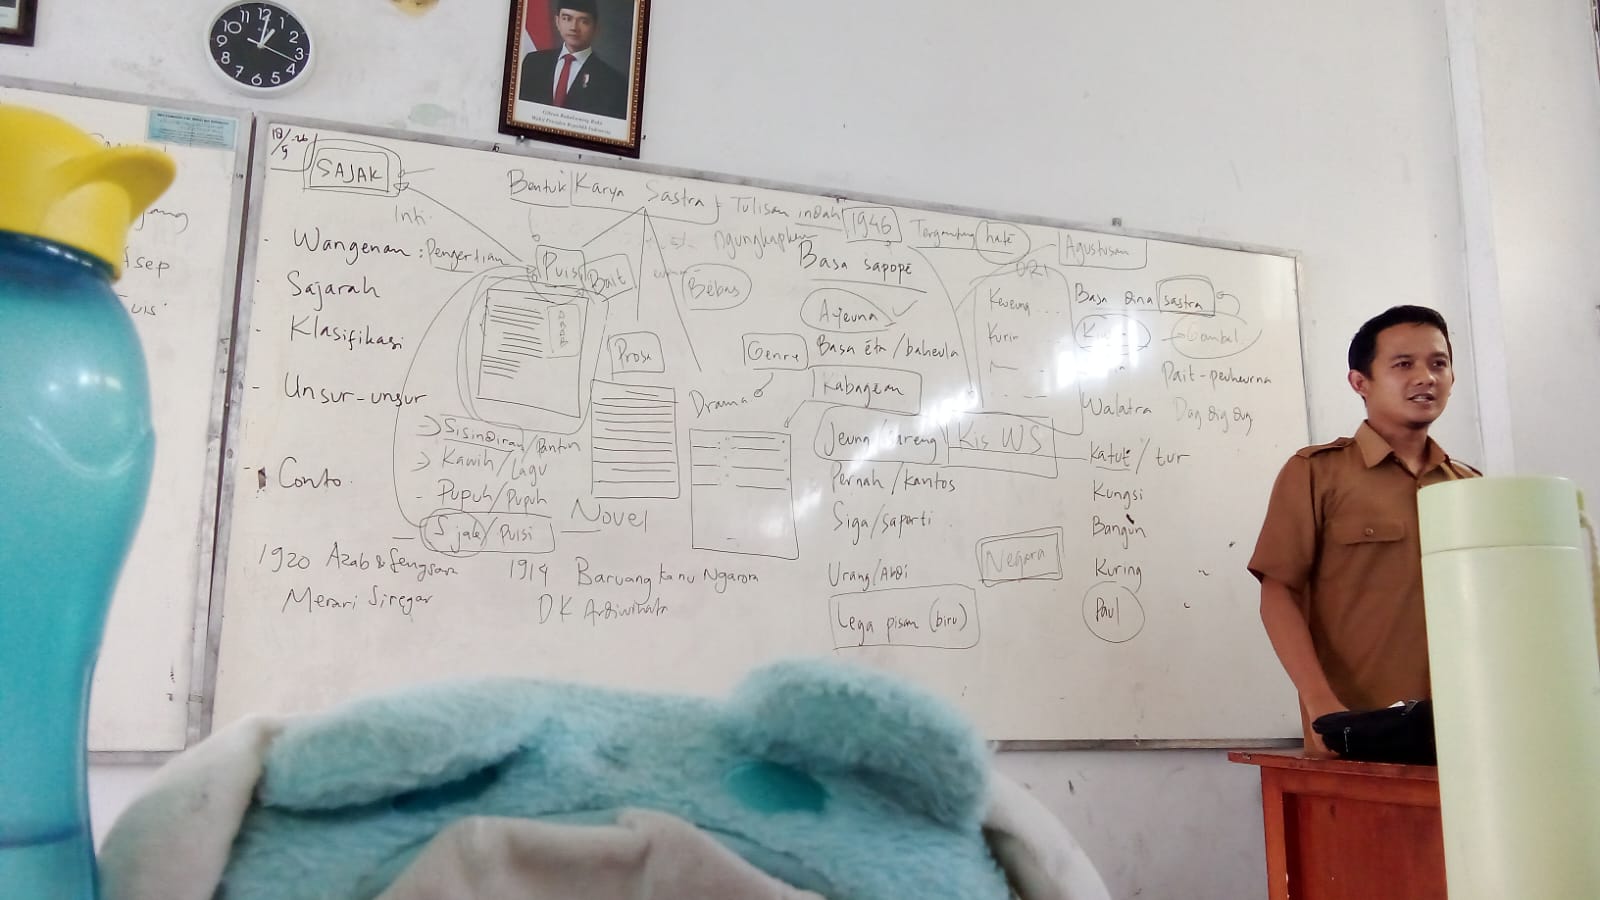 11 12 1
10 2
9 3
8 4
7 6 5
Gibran Rakabuming Raka
Wakil Presiden Republik Indonesia
SAJAK
Inti
Bentuk Karya Sastra = Tulisan indah
ngungkapkeun
1946
Tergantung hate
Agustusan
- Wangenan : Pengertian
- Sajarah
- Klasifikasi
- Unsur-unsur
-> Sisindiran/Pantun
> Kawih/Lagu
- Pupuh/Pupuh
- Sjak/Puisi
- Conto
Puisi
Bait
Bébas
Prosa
Novel
Genre
Drama
1920 Azab & Sengsara
Merari Siregar
1914 Baruang ka nu Ngarora
DK Ardiwinata
Basa sapopé
Ayeuna
Basa éta/baheula
Kabagean
Jeung/sareng
Kis WS
Pernah/kantos
Siga/saperti
Urang/Abdi
Lega pisan (biru)
Negara
Basa dina sastra
Gombal
Pait-peuheurna
Walatra
Dag dig dug
Katut/tur
Kungsi
Bangun
Kuring
Paul
sep
uis